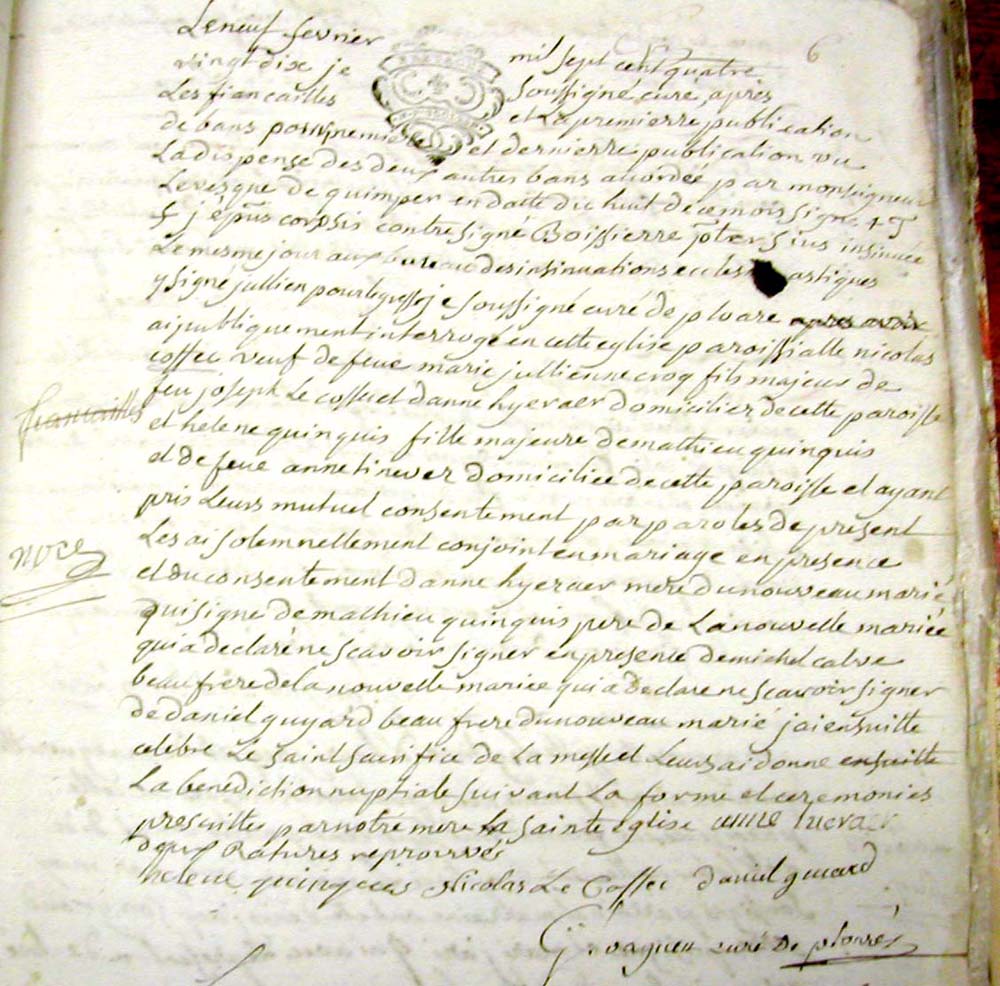 6
Le neuf fevrier mil sept cent quatre
vingt dix je soussigné curé, apres
Les fiancailles et La premierre publication
de bans et dernierre publication vu
La dispense des deux autres bans acordée par monseigneur
Levesque de quimper en datte du huit de ce mois signé
contresigné Boissierre insinuée
Le mesme jour aux bureau des insinuations eccles astiques
signé jullien je soussigné curé de ploare apres avoir
ai publiquement interrogé en cette eglise paroissialle nicolas
cossec veuf de feue marie jullienne croq fils majeur de
feu joseph Le cossec et danne hyeraer domicilier de cette paroisse
fiancailles
et helene quinquis fille majeure de mathieu quinquis
et de feue anne tinever domiciliée de cette paroisse et ayant
pris Leurs mutuel consentement par paroles de present
noce
Les ai solemnellement conjoint en mariage en presence
et du consentement danne hyeraer mere du nouveau marié
qui signe de mathieu quinquis pere de La nouvelle mariée
qui a declaré ne scavoir signer en presence de michel calve
beau frere de la nouvelle mariée qui a declare ne scavoir signer
de daniel guyard beau frere du nouveau marié jai ensuitte
celebre Le saint sacrifice de La messe et Leurs ai donne ensuitte
La benediction nuptiale suivant La forme et ceremonies
prescrittes par notre mere La sainte eglise
Ratures reprouvés
helene quinquis Nicolas Le Cossec daniel guiard
curé de ploaré